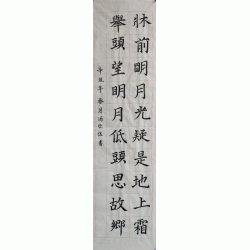 牀前明月光疑是地上霜
舉頭望明月低頭思故鄉
辛丑年春月書